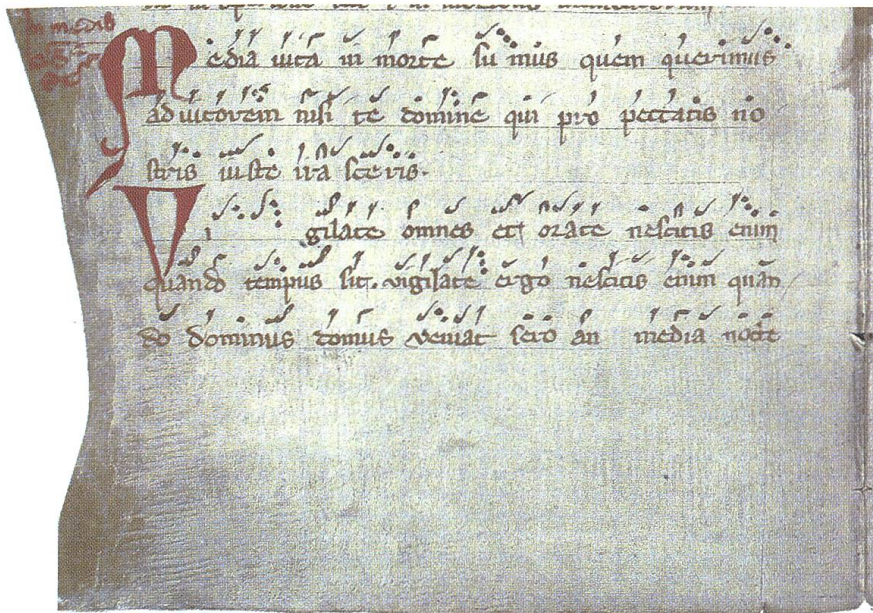 in medio
Media uita in morte su mus quem querimus
adiutorem nisi te domine qui pro peccatis no
stris iuste ira sceris.
Vi gilate omnes et orate nescitis enim
quando tempus sit. vigilate ergo nescitis enim quan
do dominus domus veniat sero an media nocte